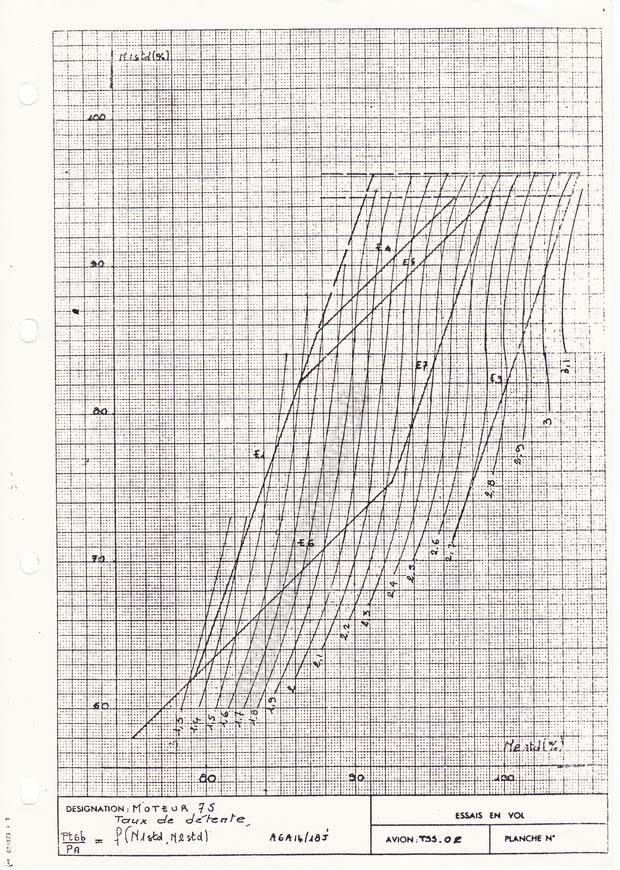 N1std(%)
100
90
80
70
60
E4
E5
E7
E9
E1
E6
1,3
1,4
1,5
1,6
1,7
1,8
1,9
2
2,1
2,2
2,3
2,4
2,5
2,6
2,7
2,8
2,9
3
3,1
N2std(%)
80
90
100
DESIGNATION: MOTEUR 75
Taux de détente,
Pt6b/PA = f(N1std, N2std)
A6A14/18J
ESSAIS EN VOL
AVION: TSS.02
PLANCHE N°